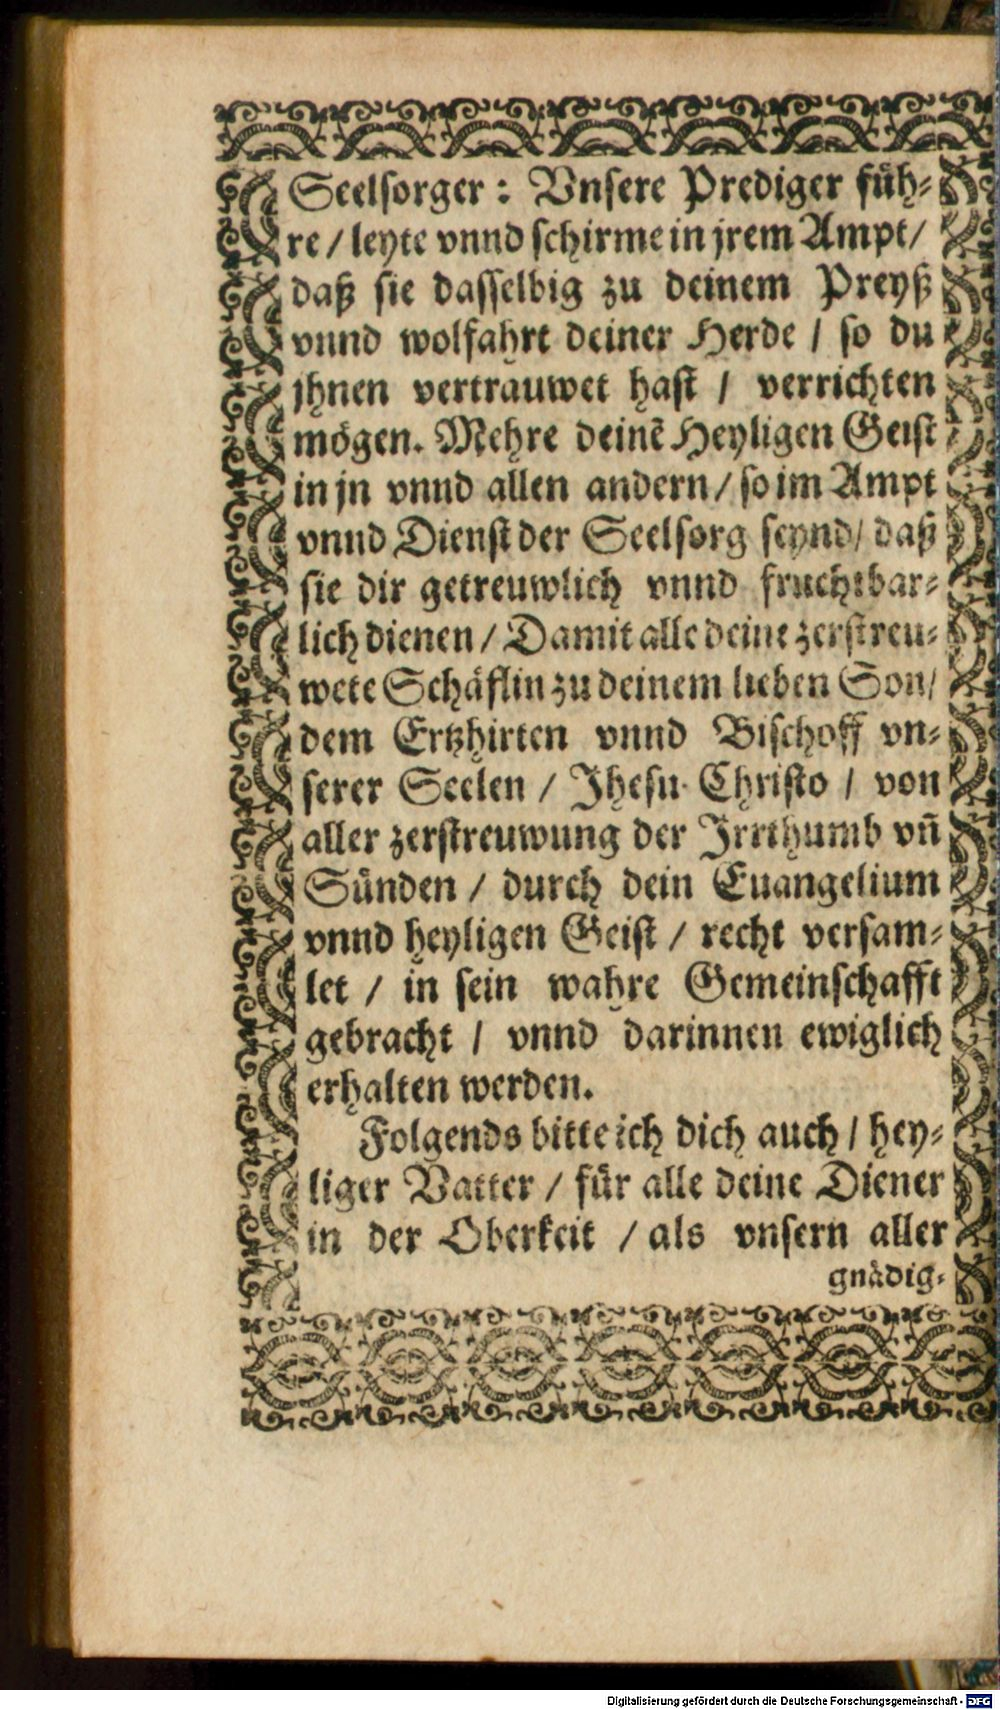 Seelsorger: Vnsere Prediger füh⸗
re / leyte vnnd schirme in jrem Ampt /
daß sie dasselbig zu deinem Preyß
vnnd wolfahrt deiner Herde / so du
jhnen vertrauwet hast / verrichten
mögen. Mehre deinẽ Heyligen Geist
in jn vnnd allen andern / so im Ampt
vnnd Dienst der Seelsorg seynd / daß
sie dir getreuwlich vnnd fruchtbar⸗
lich dienen / Damit alle deine zerstreu⸗
wete Schäflin zu deinem lieben Son /
dem Ertzhirten vnnd Bischoff vn⸗
serer Seelen / Jhesu Christo / von
aller zerstreuwung der Jrrthumb vñ
Sünden / durch dein Euangelium
vnnd heyligen Geist / recht versam⸗
let / in sein wahre Gemeinschafft
gebracht / vnnd darinnen ewiglich
erhalten werden.
Folgends bitte ich dich auch / hey⸗
liger Vatter / für alle deine Diener
in der Oberkeit / als vnsern aller
gnädig⸗
Digitalisierung gefördert durch die Deutsche Forschungsgemeinschaft - DFG